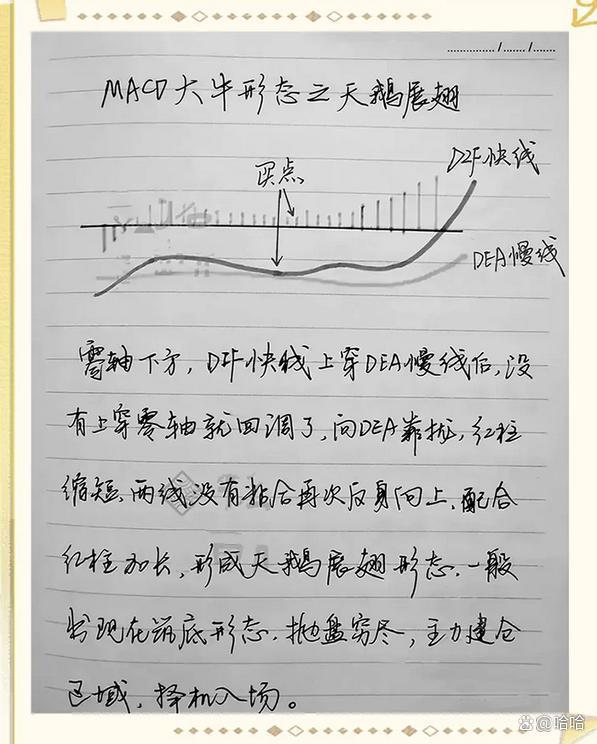 MACD大牛形态之天鹅展翅
买点
DIF快线
DEA慢线
零轴下方，DIF快线上穿DEA慢线后，没
有上穿零轴就回调了，向DEA靠拢，红柱
缩短，两线没有粘合再次反身向上，配合
红柱加长，形成天鹅展翅形态，一般
出现在筑底形态，抛盘穷尽，主力建仓
区域，择机入场。
@哈哈